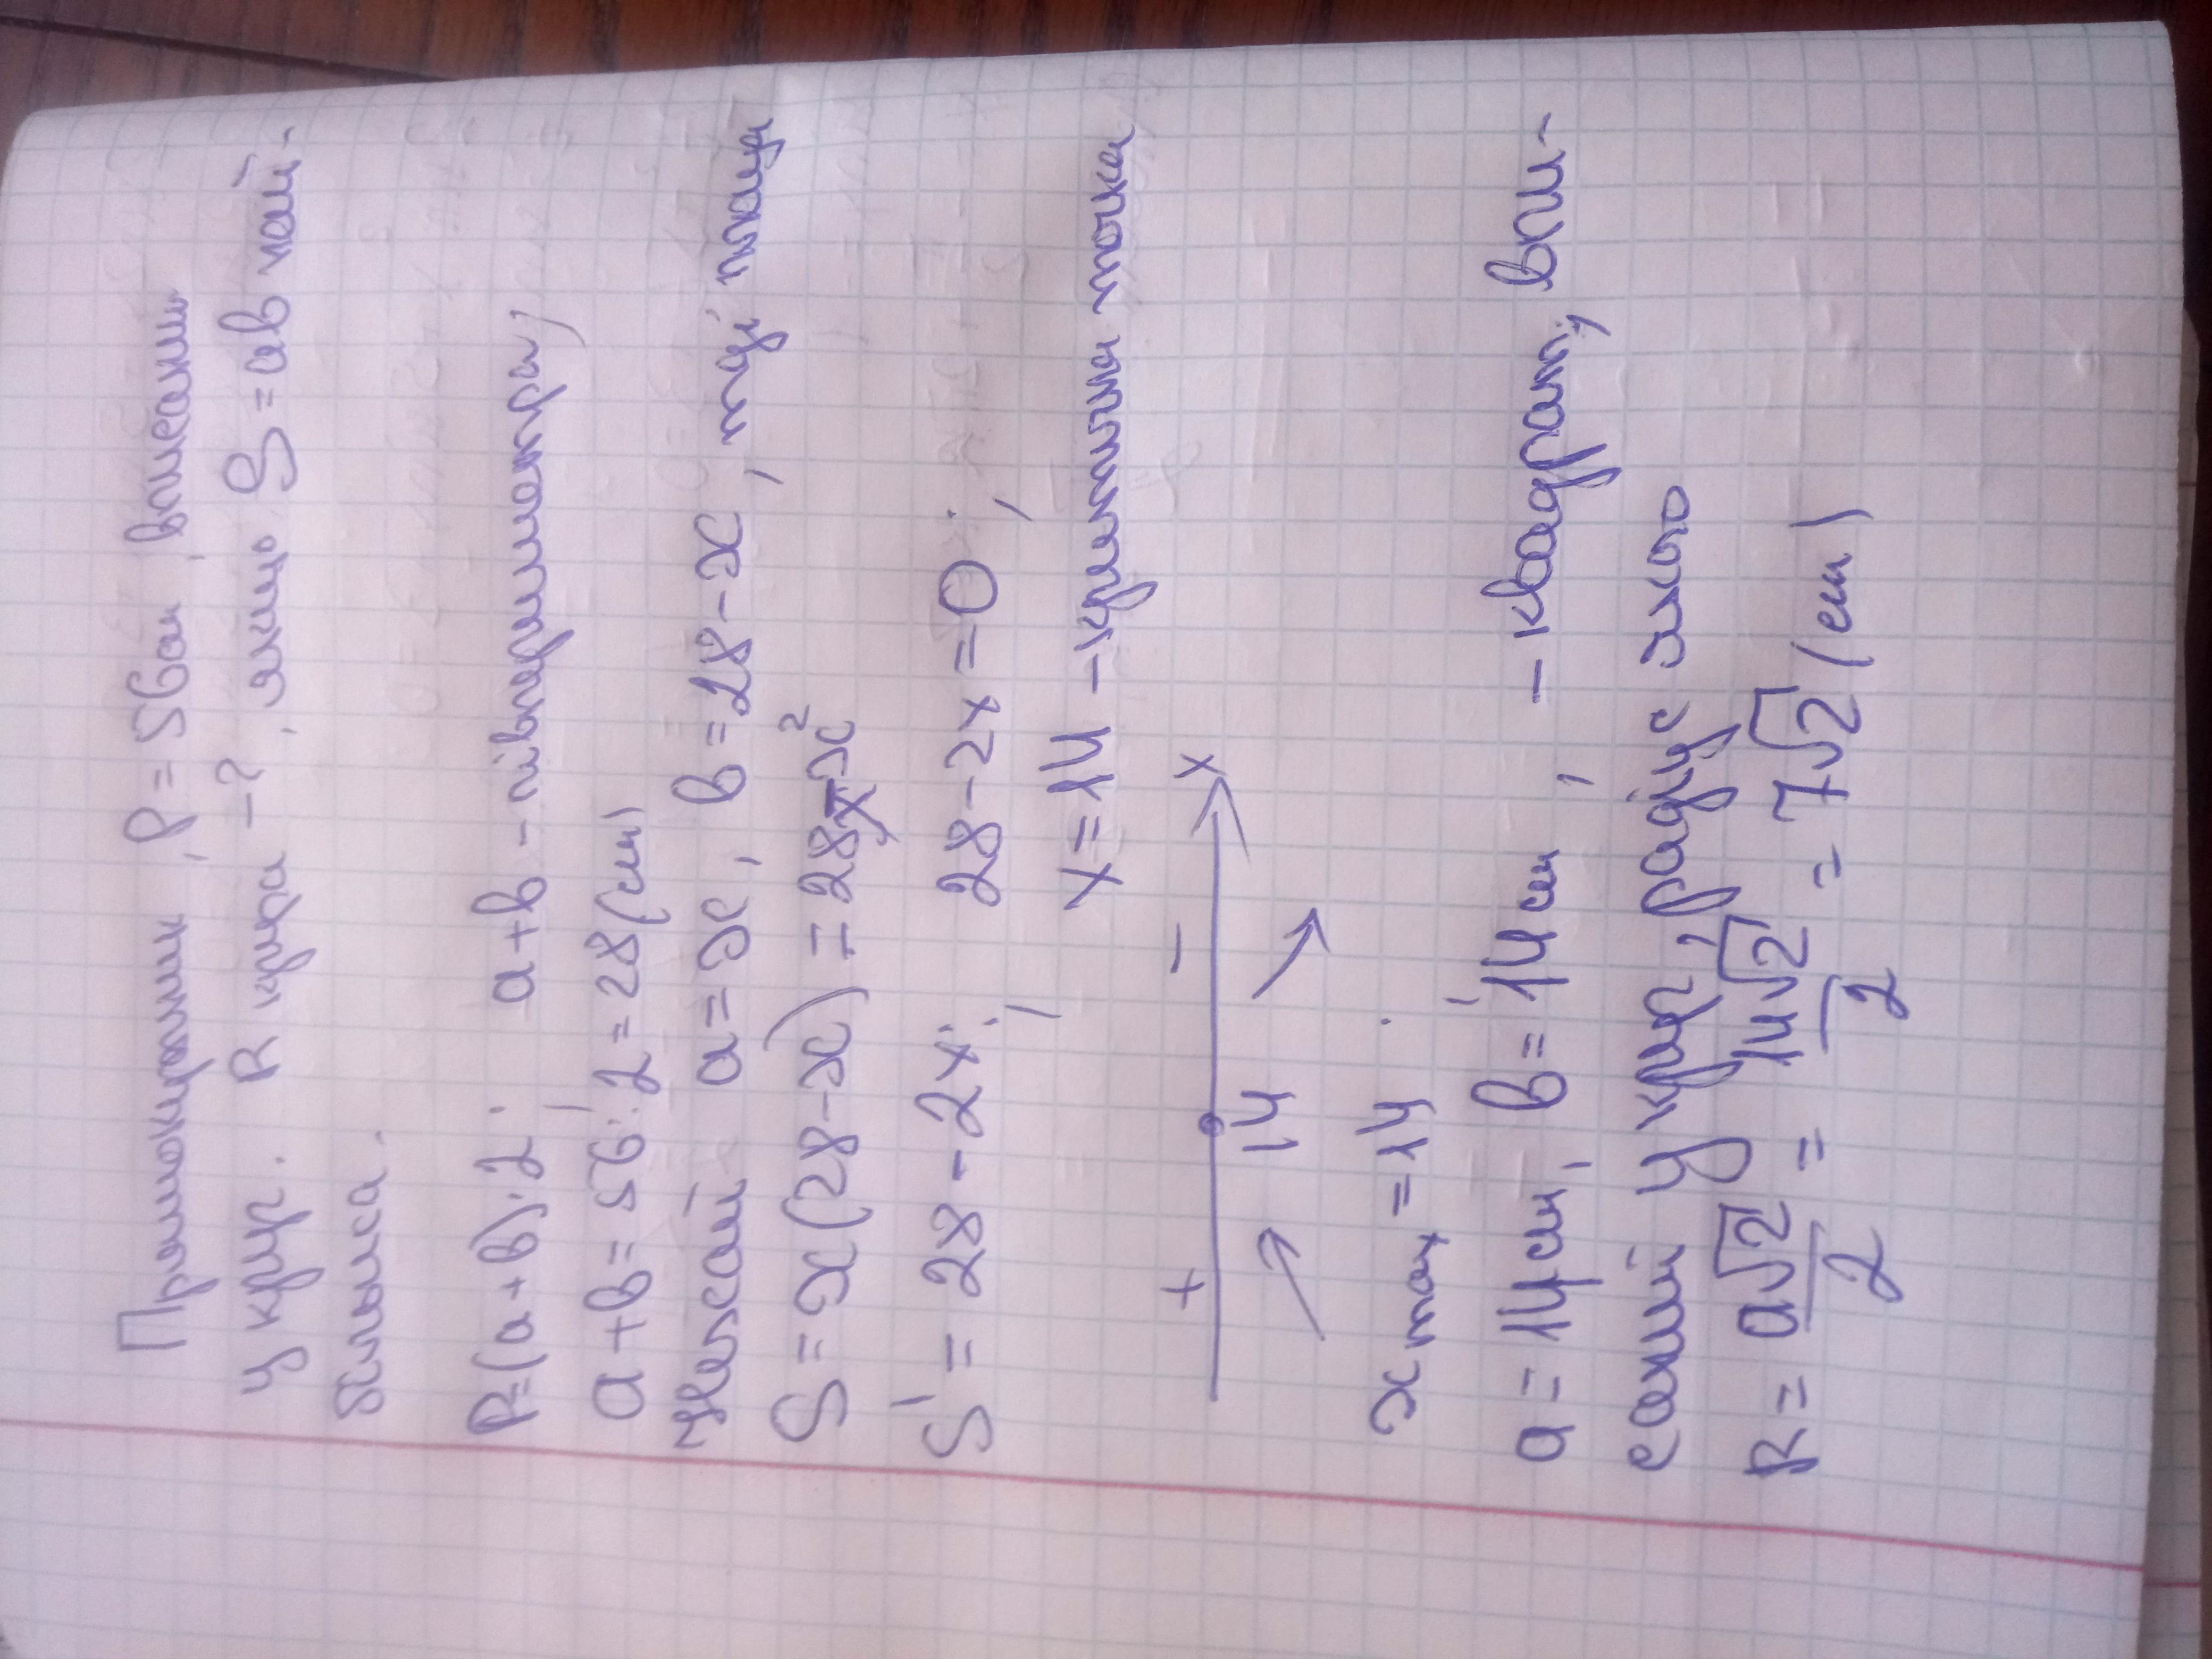 Прямокутник, P=56см, вписаний
у круг. R круга -?, якщо S=ав най-
більша.
P=(a+в)·2; a+в - півпериметра,
a+в=56:2=28(см)
Нехай a=x, в=28-x, тоді площа
S=x(28-x)=28x-x²
S'=28-2x; 28-2x=0;
x=14 - критична точка
+ - x
14
x max=14.
a=14см, в=14см, - квадрат, впи-
саний у круг, радіус якого
R=a√2/2=14√2/2=7√2(см)